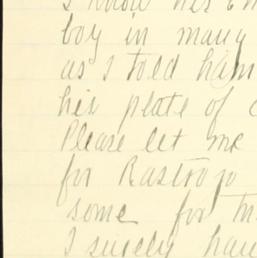 I know his
boy in many
as I told him
his plate of
Please let me
for Rastrojo
some for
I surely hav